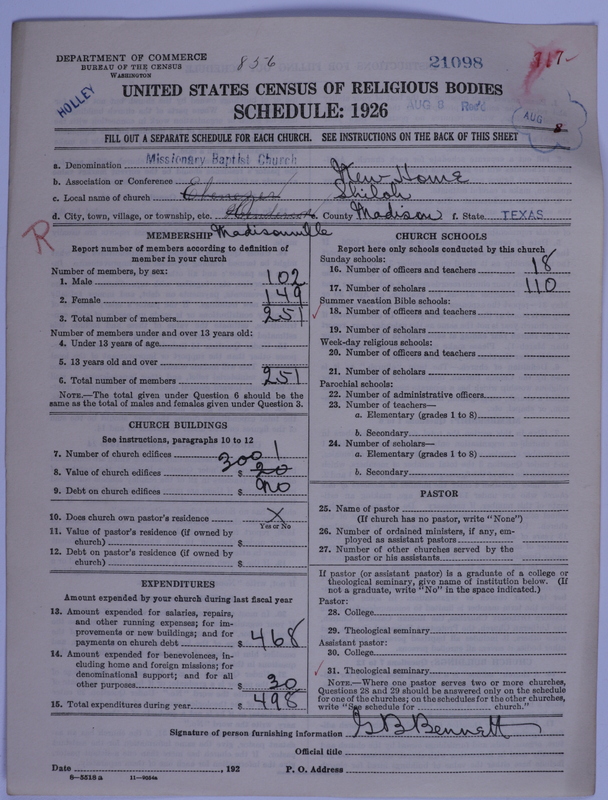 DEPARTMENT OF COMMERCE
BUREAU OF THE CENSUS
WASHINGTON
856
21098
317-
HOLLEY
UNITED STATES CENSUS OF RELIGIOUS BODIES
SCHEDULE: 1926
AUG 8 Rec'd
AUG 8
FILL OUT A SEPARATE SCHEDULE FOR EACH CHURCH. SEE INSTRUCTIONS ON THE BACK OF THIS SHEET
a. Denomination Missionary Baptist Church
b. Association or Conference New Home
c. Local name of church Ebenezer Shiloh
d. City, town, village, or township, etc. e. County Madison f. State TEXAS
Madisonville
R
MEMBERSHIP
Report number of members according to definition of
member in your church
Number of members, by sex:
1. Male 102
2. Female 149
3. Total number of members 251
Number of members under and over 13 years old:
4. Under 13 years of age
5. 13 years old and over
6. Total number of members 251
NOTE.—The total given under Question 6 should be
same as the total of males and females given under Question 3.
CHURCH BUILDINGS
See instructions, paragraphs 10 to 12
7. Number of church edifices 1
8. Value of church edifices $ 300 20
9. Debt on church edifices $ no
10. Does church own pastor's residence X
Yes or No
11. Value of pastor's residence (if owned by
church) $
12. Debt on pastor's residence (if owned by
church) $
EXPENDITURES
Amount expended by your church during last fiscal year
13. Amount expended for salaries, repairs,
and other running expenses; for im-
provements or new buildings; and for
payments on church debt $ 468
14. Amount expended for benevolences, in-
cluding home and foreign missions; for
denominational support; and for all
other purposes $ 30
15. Total expenditures during year $ 498
CHURCH SCHOOLS
Report here only schools conducted by this church
Sunday schools:
16. Number of officers and teachers 18
17. Number of scholars 110
Summer vacation Bible schools:
18. Number of officers and teachers
19. Number of scholars
Week-day religious schools:
20. Number of officers and teachers
21. Number of scholars
Parochial schools:
22. Number of administrative officers
23. Number of teachers—
a. Elementary (grades 1 to 8)
b. Secondary
24. Number of scholars—
a. Elementary (grades 1 to 8)
b. Secondary
PASTOR
25. Name of pastor
(If church has no pastor, write "None")
26. Number of ordained ministers, if any, em-
ployed as assistant pastors
27. Number of other churches served by the
pastor or his assistants
If pastor (or assistant pastor) is a graduate of a college or
theological seminary, give name of institution below. (If
not a graduate, write "No" in the space indicated.)
Pastor:
28. College
29. Theological seminary
Assistant pastor:
30. College
31. Theological seminary
NOTE.—Where one pastor serves two or more churches,
Questions 28 and 29 should be answered only on the schedule
for one of the churches; on the schedules for the other churches,
write "See schedule for church."
Signature of person furnishing information G B Bennett
Official title
Date , 192 P. O. Address
8-5518 a 11-9054a